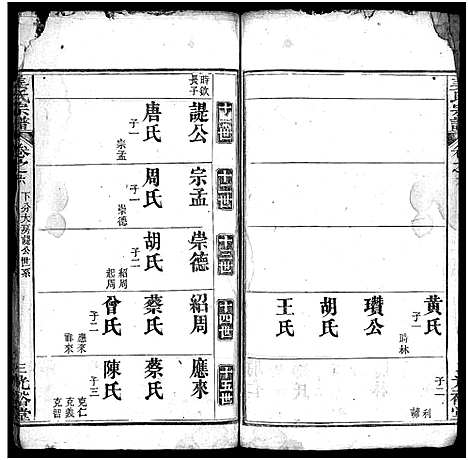 黄氏
子一
時林
瓚公
胡氏
王氏
子二
十一世
時欽
長子
諟公
唐氏
子一
宗孟
十二世
宗孟
周氏
子一
崇德
十三世
崇德
胡氏
子二
紹周
起周
十四世
紹周
蔡氏
曾氏
子二
應來
十五世
應來
蔡氏
陳氏
子三
克仁
克義
克智
氏宗譜
下分大房諟公世系
三
光裕堂